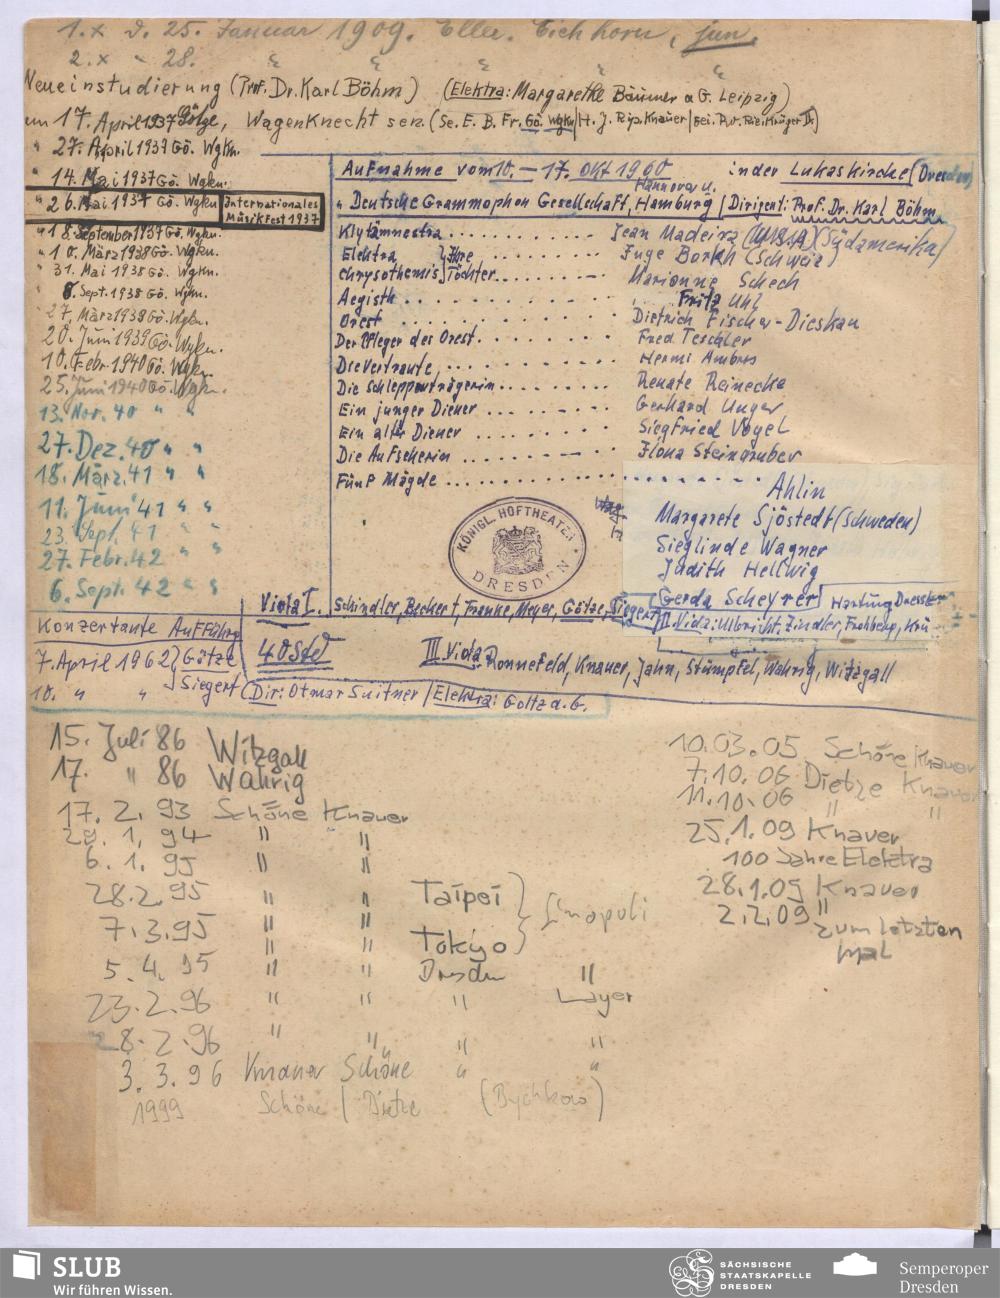 1. x d. 25. Januar 1909. Eller. Eichhorn, jun.
2. x " 28. " " " "
Neueinstudierung (Prof. Dr. Karl Böhm) (Elektra: Margarethe Bäumer a. G. Leipzig)
am 17. April 1937 Götze, Wagenknecht sen. (Se. E. B. Fr. Gö. Wgkn/H. J. Rip. Knauer/
" 27. April 1937 Gö. Wgkn.
" 14. Mai 1937 Gö. Wgkn.
" 26. Mai 1937 Gö. Wgkn Internationales Musikfest 1937
" 18. September 1937 Gö. Wgkn.
" 10. März 1938 Gö. Wgkn.
" 31. Mai 1938 Gö. Wgkn.
8. Sept. 1938 Gö. Wgkn.
27. März 1938 Gö. Wgkn.
20. Juni 1939 Gö. Wgkn.
10. Febr 1940 Gö. Wgkn.
25. Juni 1940 Gö. Wgkn.
13. Nov. 40 " "
27. Dez. 40 " "
18. März 41 " "
11. Juni 41 " "
23. Sept. 41 " "
27. Febr. 42 " "
6. Sept. 42 " "
Aufnahme vom 10. – 17. Okt 1960 in der Lukaskirche (Dresden)
" Deutsche Grammophon Gesellschaft, Hannover u. Hamburg / Dirigent: Prof. Dr. Karl Böhm
Klytämnestra . . . . . . . . . . Jean Madeira (USA) (Südamerika)
Elektra } Ihre . . . . . . . . Inge Borkh (Schweiz)
Chrysothemis } Töchter . . . . . . . Marianne Schech
Aegisth . . . . . . . . . . . . Fritz Uhl
Orest . . . . . . . . . . . . Dietrich Fischer-Dieskau
Der Pfleger des Orest . . . . . . . . Fred Teschler
Die Vertraute, . . . . . . . . . . Hermi Ambros
Die Schleppenträgerin . . . . . . . . Renate Reinecke
Ein junger Diener . . . . . . . . Gerhard Unger
Ein alter Diener . . . . . . . . Siegfried Vogel
Die Aufseherin . . . . . . . . . Ilona Steingruber
Fünf Mägde . . . . . . . . . . . . . . . .
Ahlin
Margarete Sjöstedt (Schweden)
Sieglinde Wagner
Judith Hellwig
Gerda Scheyrer
KÖNIGL. HOFTHEATER DRESDEN
Viola I. Schindler, Beckert, Franke, Meyer, Götze, Siegert
Hartung Dressler
II. Viola: Ulbricht, Zindler, Frohberg, Krü
40 Std III Viola Ronnefeld, Knauer, Jahn, Stümpfel, Wahrig, Witzgall
Konzertante Aufführg
7. April 1962 } Götze
10. " " } Siegert (Dir: Otmar Suitner / Elektra: Goltz a. G.
15. Juli 86 Witzgall
17. " 86 Wahrig
17. 2. 93 Schöne Knauer
29. 1. 94 " "
6. 1. 95 " "
28. 2. 95 " " Taipei } Sinopoli
7. 3. 95 " " Tokyo
5. 4. 95 " " Dresden "
23. 2. 96 " " " Layer
28. 2. 96 " " " "
3. 3. 96 Knauer Schöne " "
1999 Schöne / Dietze (Bychkow)
10.03.05 Schöne/Knauer
7.10.06 Dietze Knauer
11.10.06 " "
25.1.09 Knauer
100 Jahre Elektra
28.1.09 Knauer
2.2.09 "
zum letzten
Mal
SLUB
Wir führen Wissen.
SÄCHSISCHE
STAATSKAPELLE
DRESDEN
Semperoper
Dresden